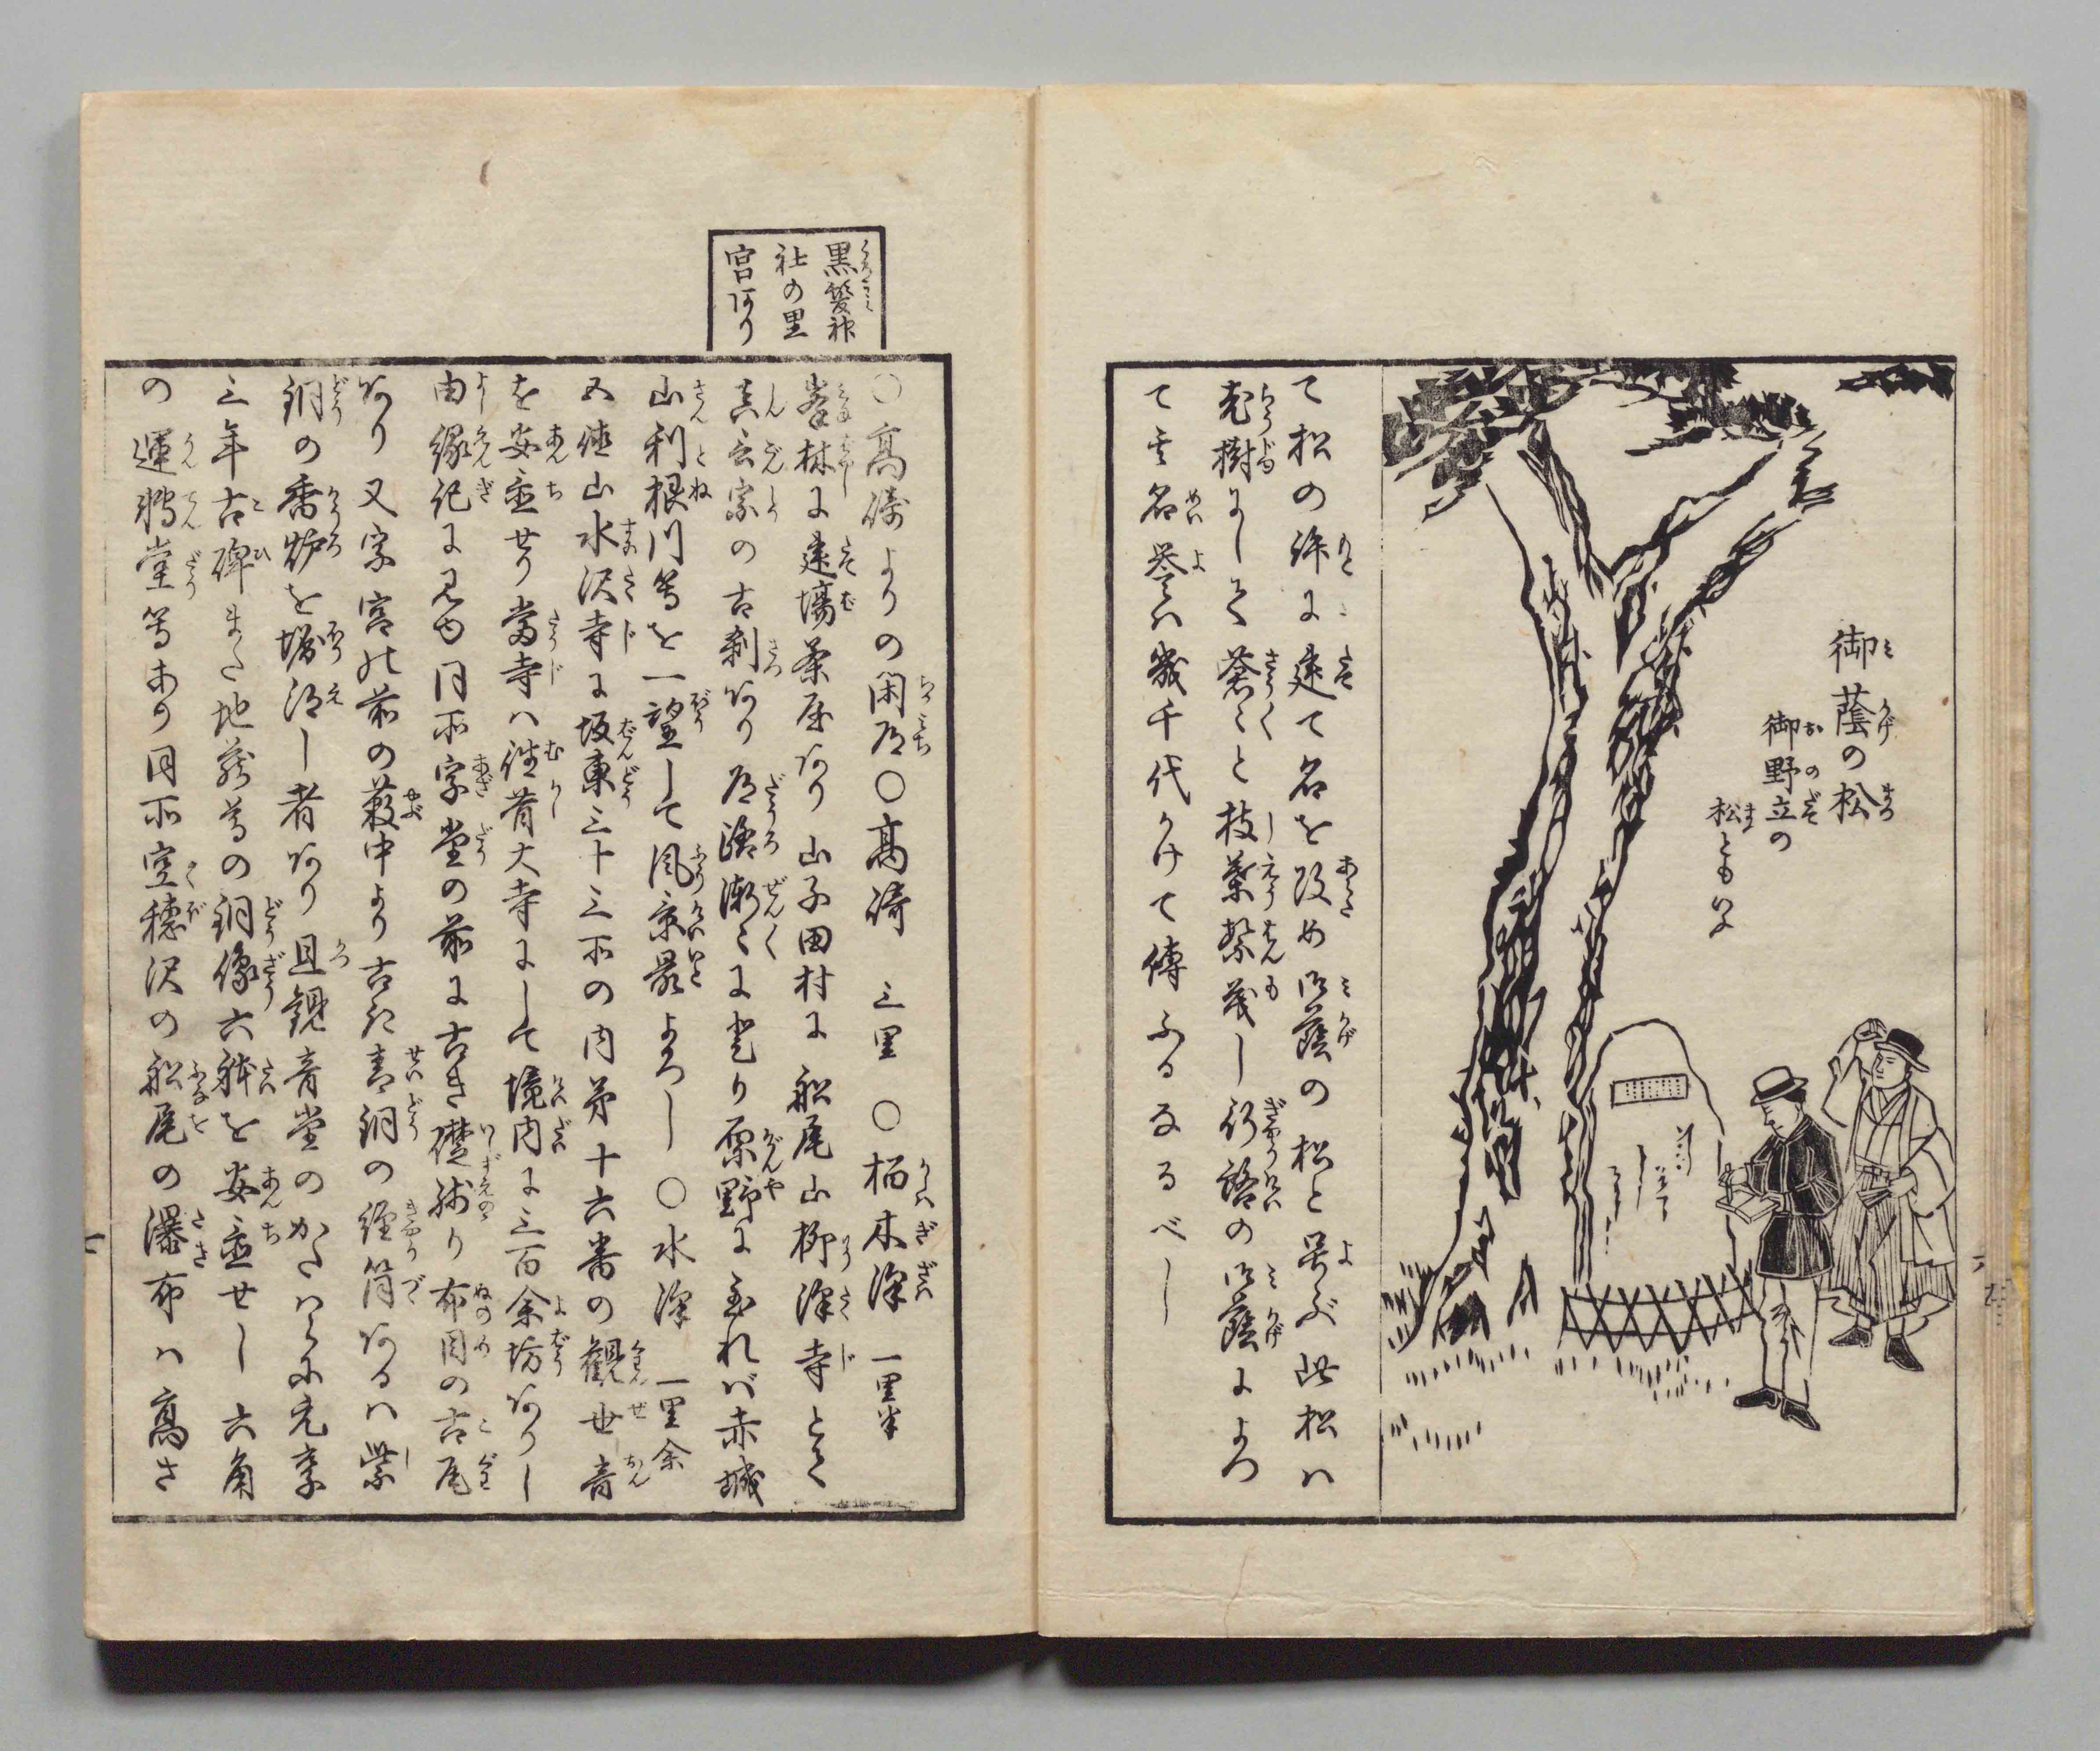 御蔭の松
御野立の
松ともいふ
て松の許に建て名を改め御蔭の松と号ぶ此松は
老樹にして蒼々と枝葉繁茂し行路の御蔭によつ
て其名誉は幾千代かけて傳ふるなるべし
黒髪神
社の里
宮あり
○高崎よりの閑道○高崎 三里 ○栢木澤 一里半
峯林に建場茶屋あり山子田村に船尾山柳澤寺とて
真言宗の古刹あり道路漸々に登り原野に至れば赤城
山利根川等を一望して風景最よろし ○水澤 一里余
五徳山水沢寺に坂東三十三所の内第十六番の観世音
を安置せり當寺は往昔大寺にして境内に三百余坊ありし
由縁記に見ゆ同所字堂の前に古き礎残り布目の古瓦
あり又字宮の前の薮中より古き青銅の経筒あるは紫
銅の香炉を堀得し者あり且観音堂のかたはらに元亨
三年古碑また地蔵尊の銅像六躰を安置せし六角
の運轉堂等あり同所空穂沢の船尾の瀑布は高さ
七